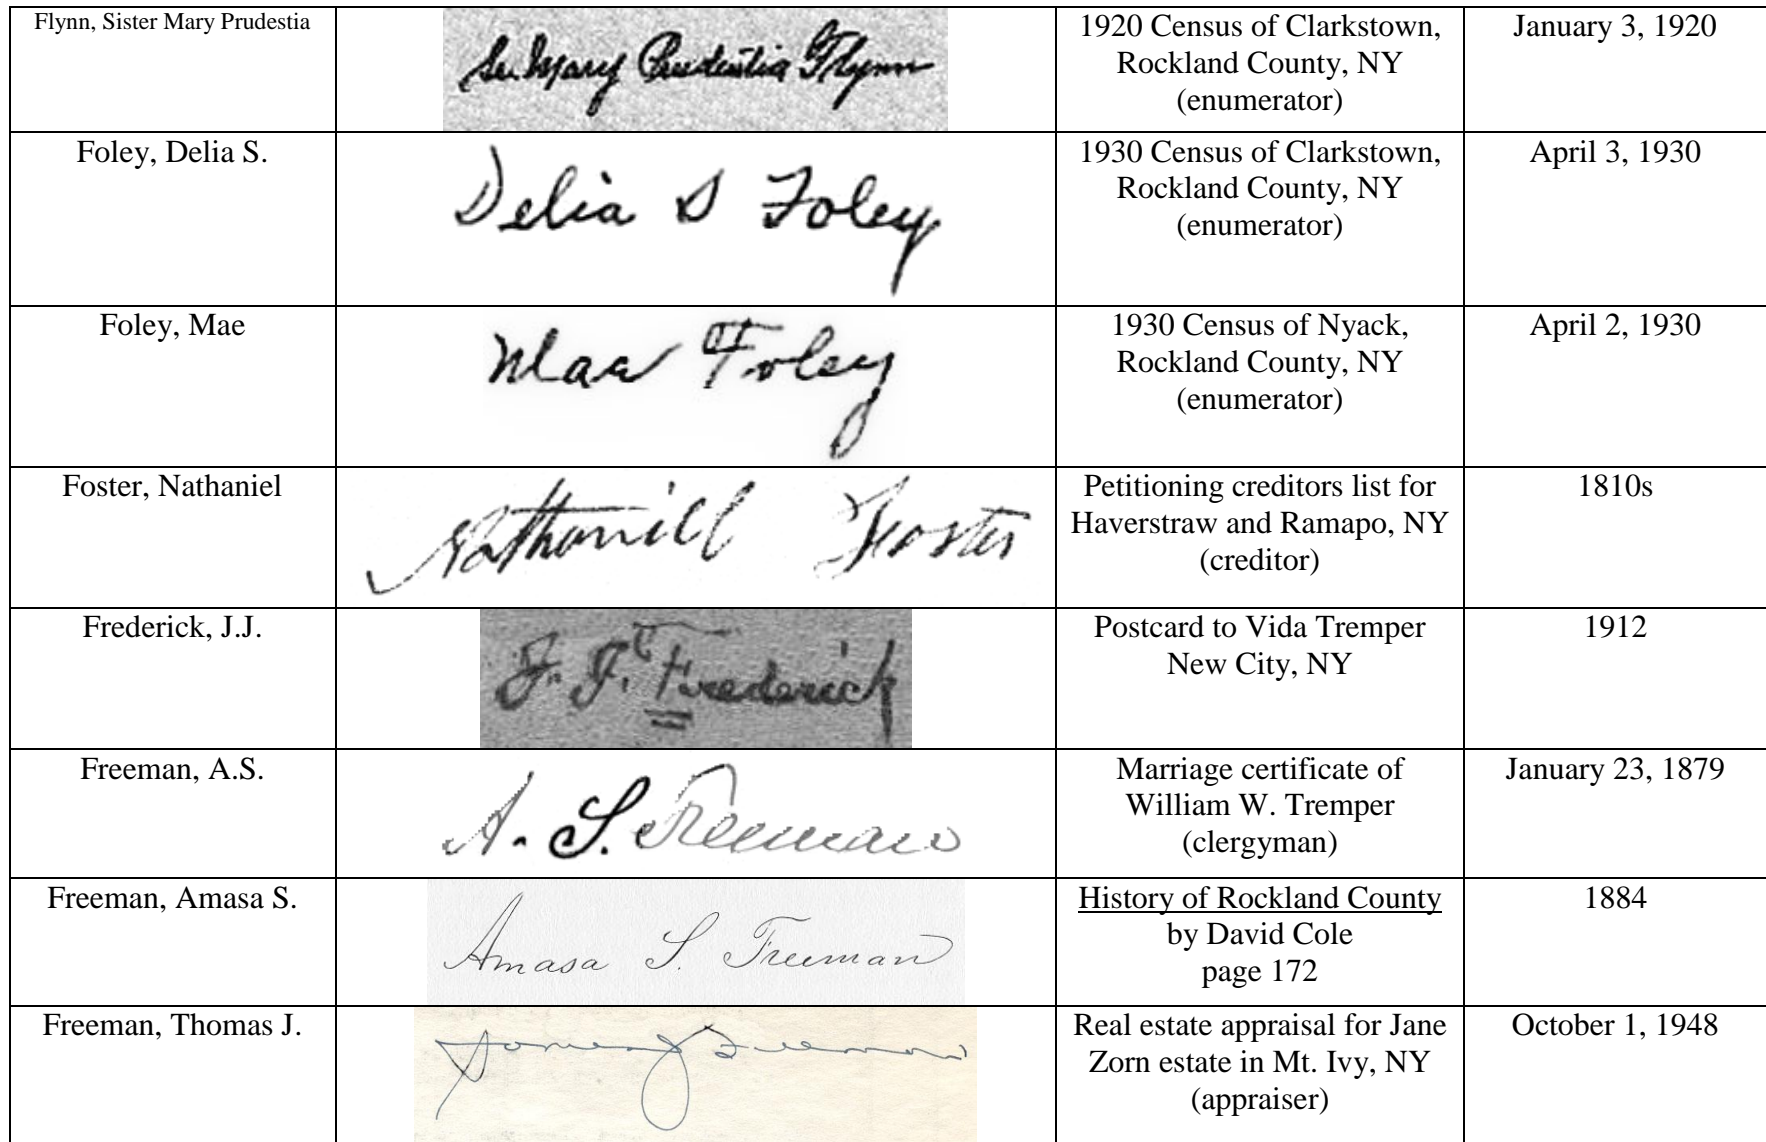 Flynn, Sister Mary Prudestia
Sr. Mary Prudentia Flynn
1920 Census of Clarkstown,
Rockland County, NY
(enumerator)
January 3, 1920
Foley, Delia S.
Delia S Foley
1930 Census of Clarkstown,
Rockland County, NY
(enumerator)
April 3, 1930
Foley, Mae
Mae Foley
1930 Census of Nyack,
Rockland County, NY
(enumerator)
April 2, 1930
Foster, Nathaniel
Nathanill Foster
Petitioning creditors list for
Haverstraw and Ramapo, NY
(creditor)
1810s
Frederick, J.J.
J. J. Frederick
Postcard to Vida Tremper
New City, NY
1912
Freeman, A.S.
A. S. Freeman
Marriage certificate of
William W. Tremper
(clergyman)
January 23, 1879
Freeman, Amasa S.
Amasa S. Freeman
History of Rockland County
by David Cole
page 172
1884
Freeman, Thomas J.
Thomas J Freeman
Real estate appraisal for Jane
Zorn estate in Mt. Ivy, NY
(appraiser)
October 1, 1948